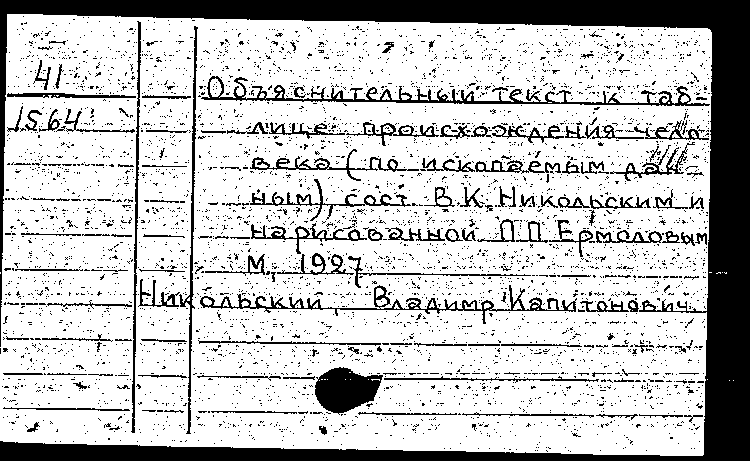 41
1564
Объяснительный текст к таб-
лице происхождения чело
века (по ископаемым дан-
ным), сост. В.К. Никольским и
нарисованной П П Ермоловым
М, 1927
Никольский, Владимир Капитонович.